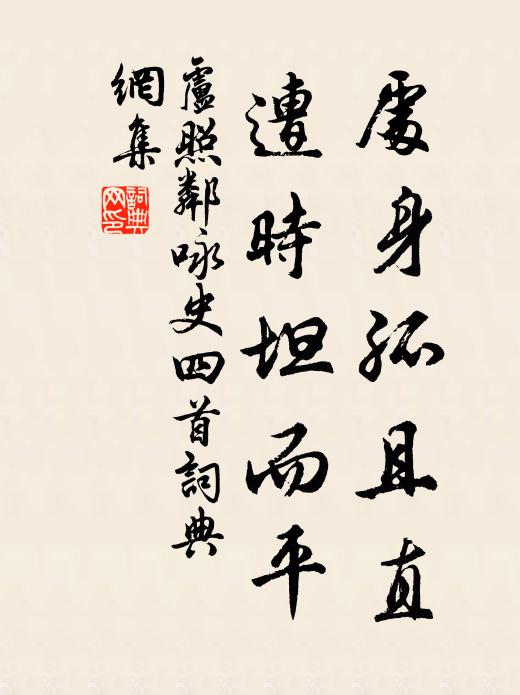 處身孤且直
遭時坦而平
盧照鄰咏史四首詞典
網集
詞典網印